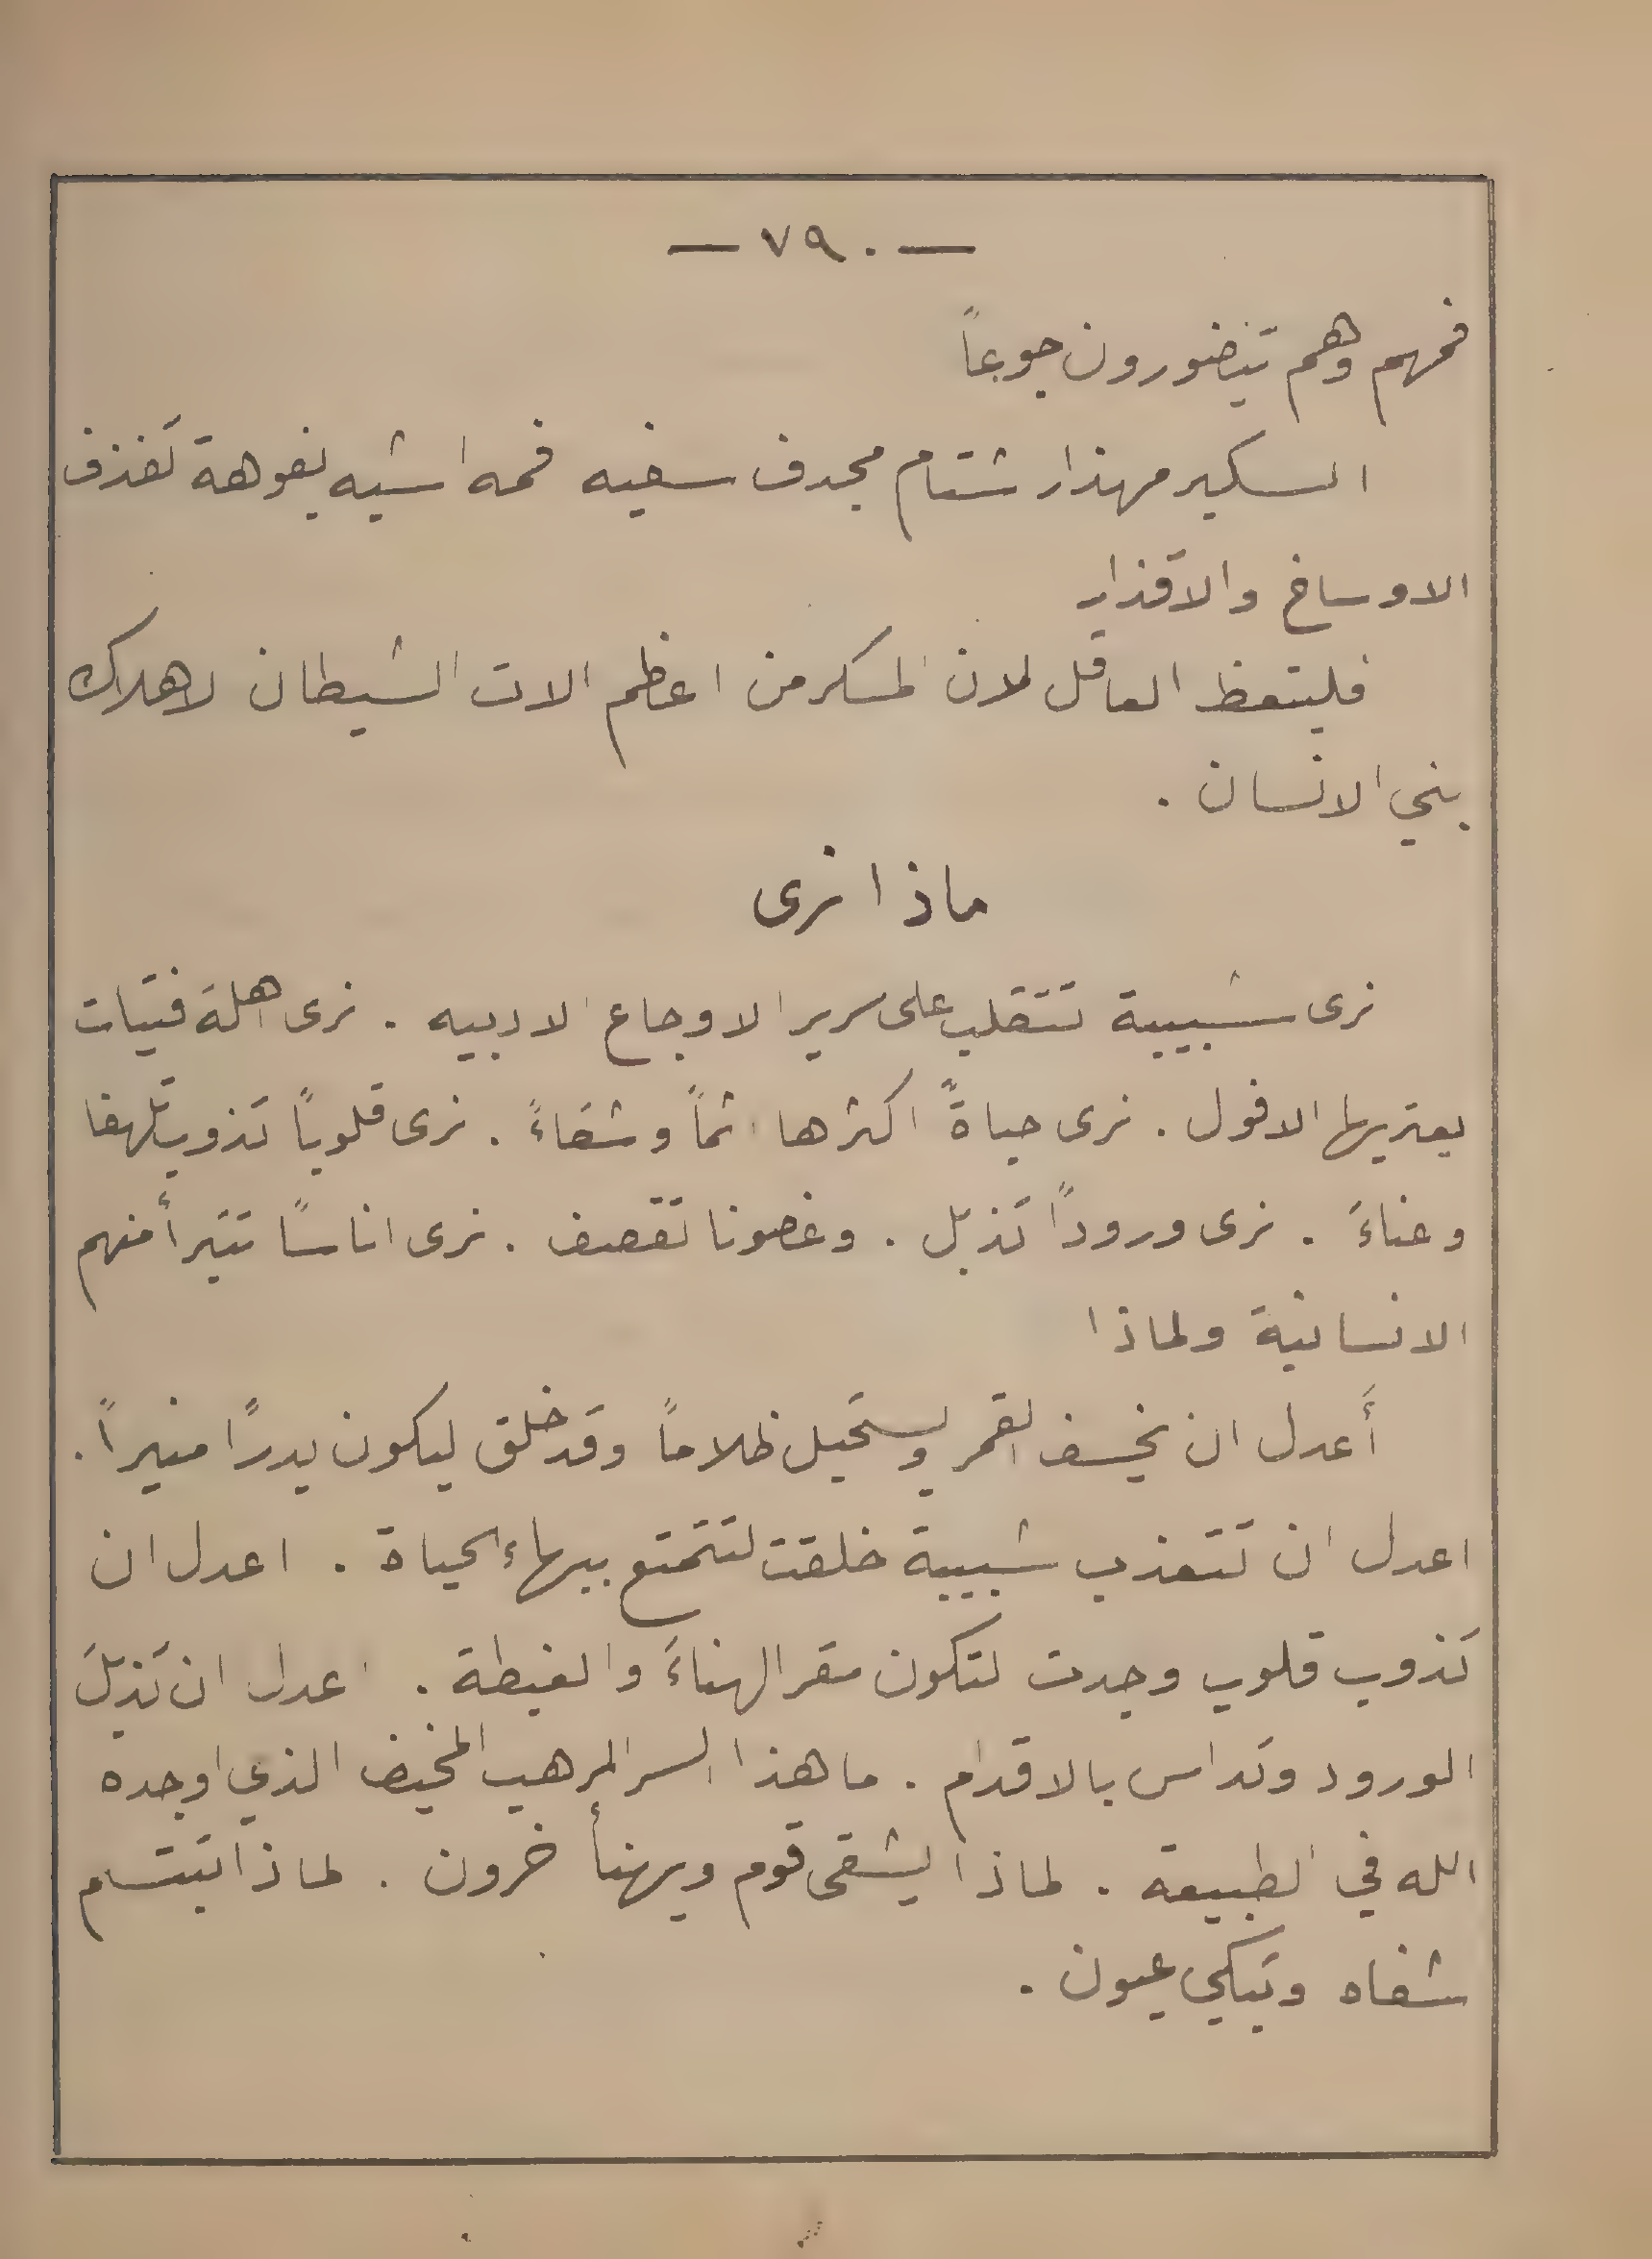 — ٧٩٠ —
فمهم وهم يتضورون جوعاً
السكير مهذار شتام مجدف سفيه فمه اشبه بفوهة تقذف
الاوساخ والاقذار
فليتعظ العاقل لان المسكر من اعظم الات الشيطان لاهلاك
بني الانسان .
ماذا نرى
نرى شبيبة تتقلب على سرير الاوجاع الادبيه . نرى اهلة فتيات
يعتريها الافول . نرى حياةً اكثرها اثماً وشقاءً . نرى قلوباً تذوب تلهفا
وعناءً . نرى وروداً تذبل . وغصونا تقصف . نرى اناساً تتبرأ منهم
الانسانية ولماذا
أَعدل ان يخسف القمر ويستحيل ظلاماً وقد خلق ليكون بدراً منيراً .
اعدل ان تتعذب شبيبة خلقت لتتمتع ببهاء الحياة . اعدل ان
تذوب قلوب وجدت لتكون مقر الهناءَ والغبطة . اعدل ان تذبلَ
الورود وتداس بالاقدام . ما هذا السر المرهب المخيف الذي اوجده
الله في الطبيعة . لماذا يشقى قوم ويهنأ خرون . لماذا تبتسم
شفاه وتبكي عيون .